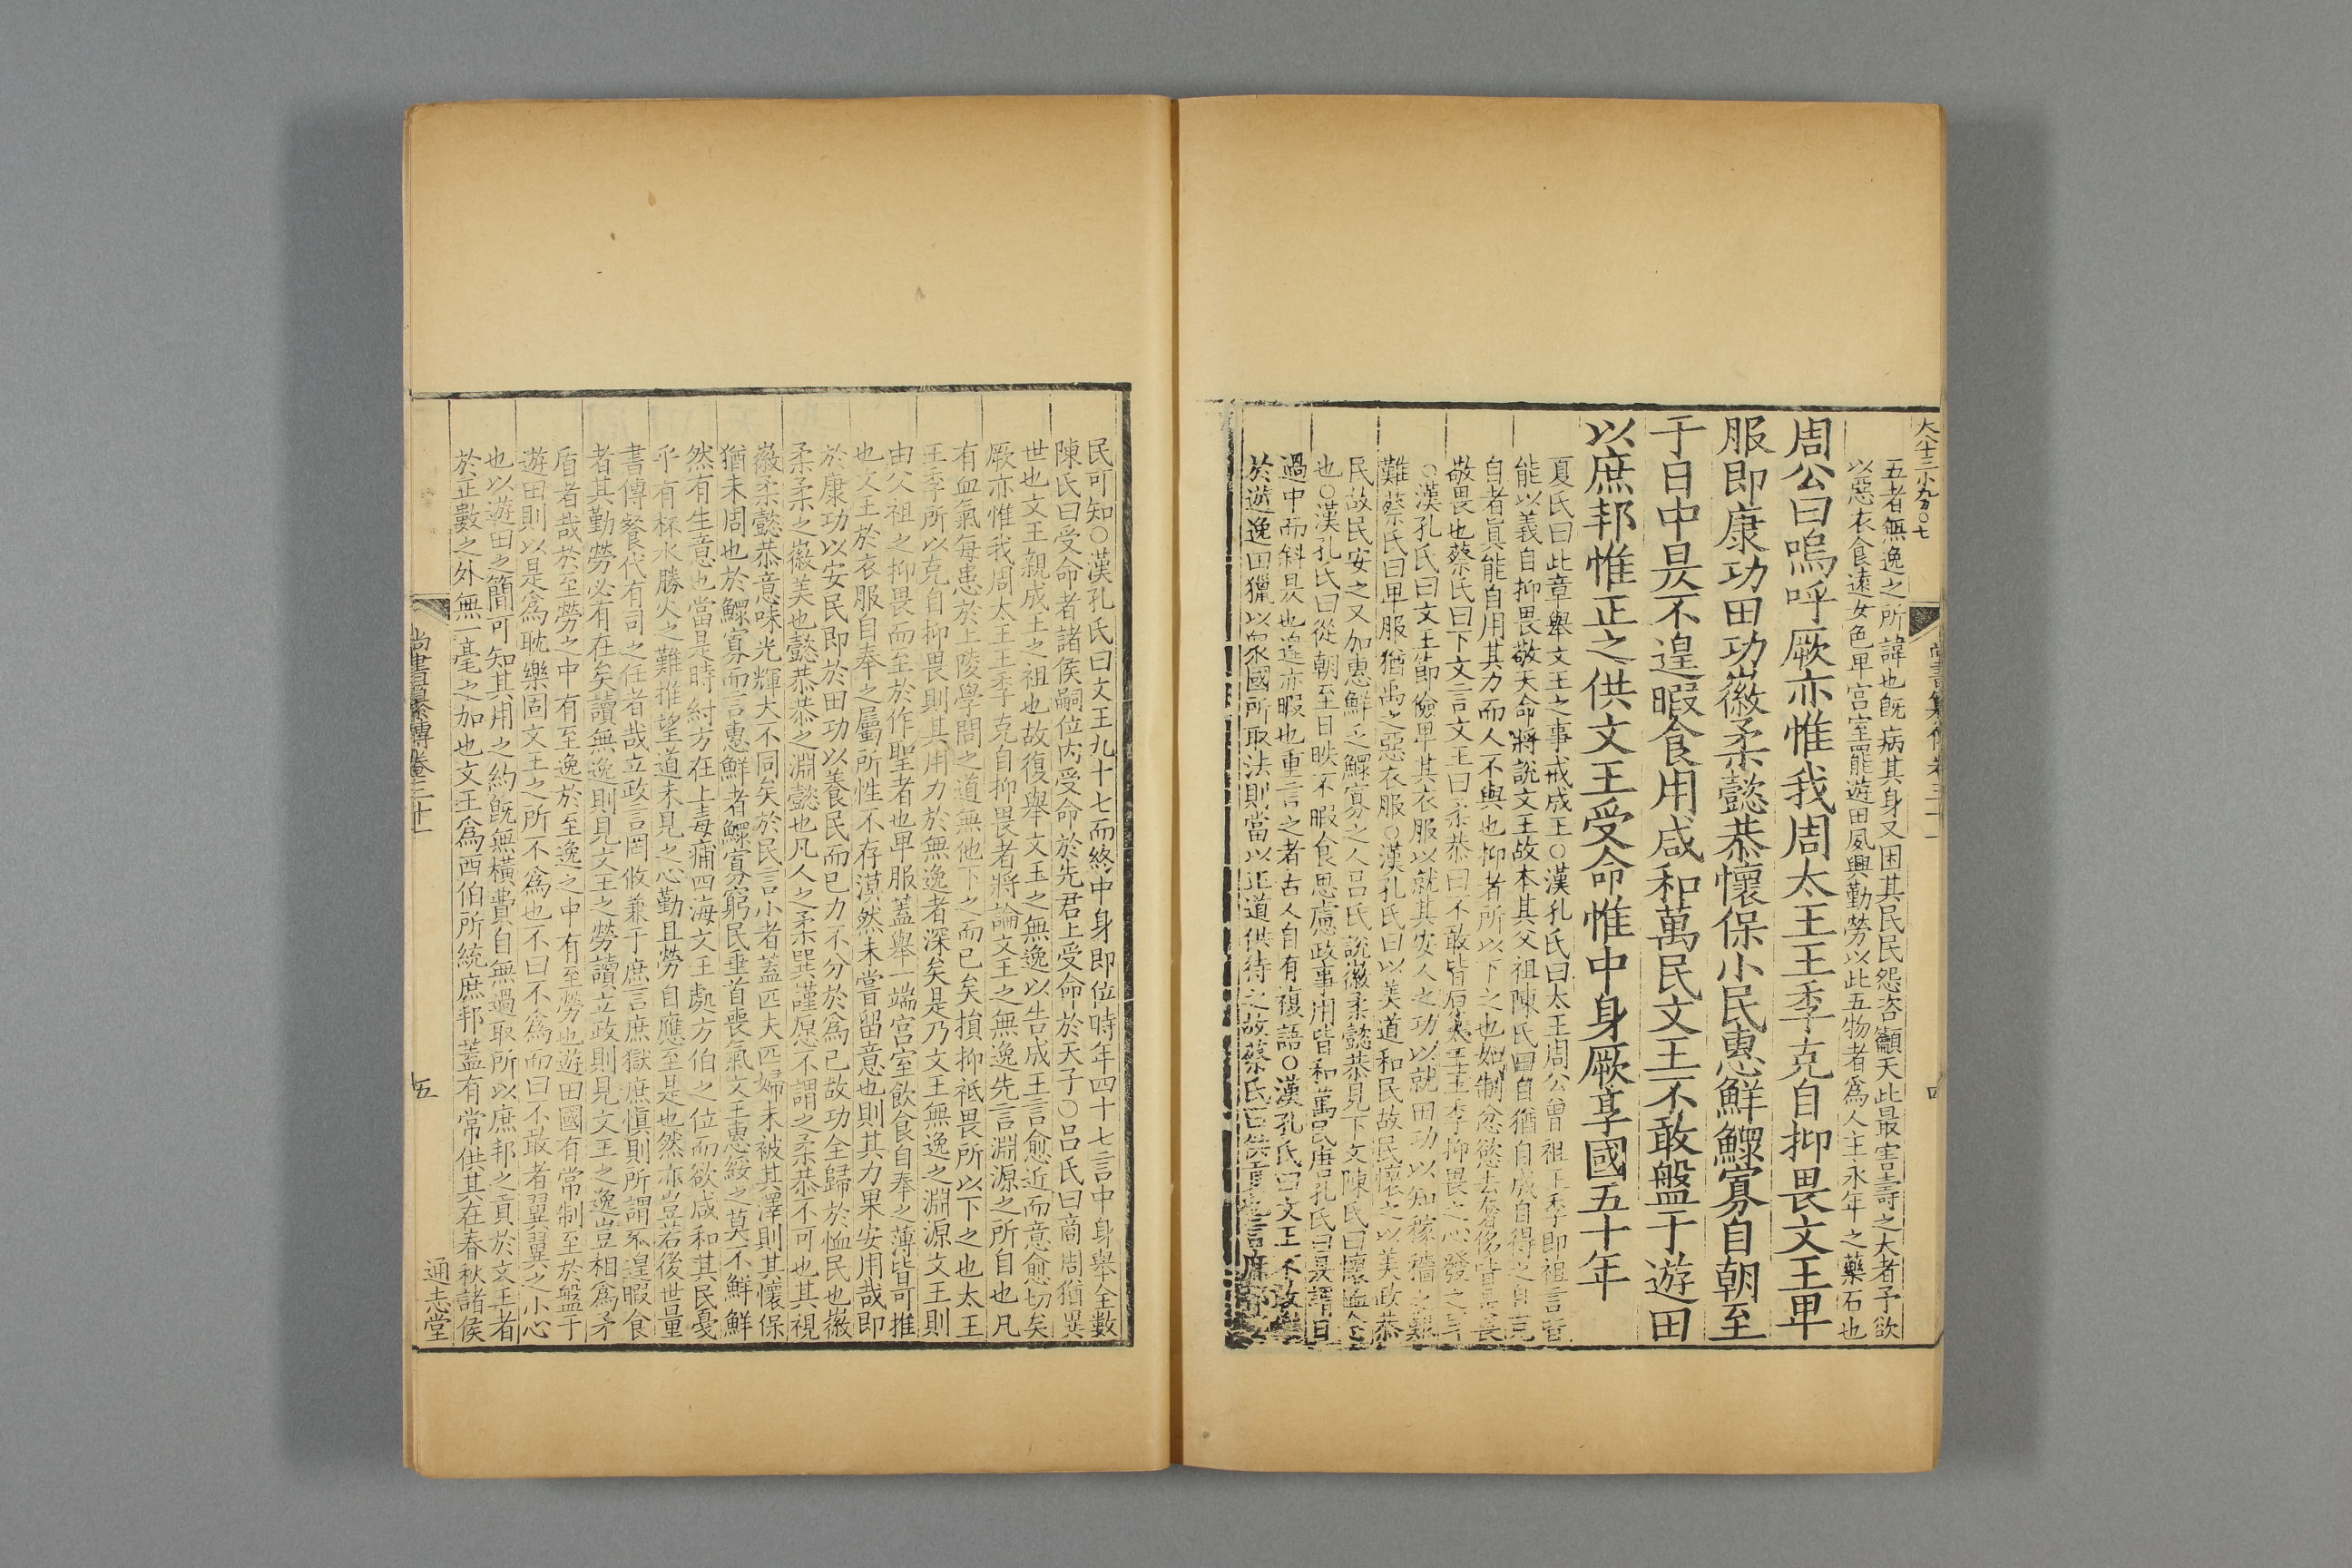 五者無逸之所諱也既病其身又困其民民怨咨籲天此最害壽之大者予欲
以惡衣食遠女色卑宮室罷遊田夙興勤勞以此五物者爲人主永年之藥石也
周公曰嗚呼厥亦惟我周太王王季克自抑畏文王卑
服即康功田功徽柔懿恭懷保小民惠鮮鰥寡自朝至
于日中昃不遑暇食用咸和萬民文王不敢盤于遊田
以庶邦惟正之供文王受命惟中身厥享國五十年
夏氏曰此章舉文王之事戒成王○漢孔氏曰太王周公曾祖王季即祖言皆
能以義自抑畏敬天命將說文王故本其父祖陳氏曰自猶自成自得之自克
自者眞能自用其力而人不與也抑者所以下之也如制忿慾去奢侈皆是畏
敬畏也蔡氏曰下文言文王曰柔恭曰不敢皆原太王王季抑畏之心發之耳
○漢孔氏曰文王節儉卑其衣服以就其安人之功以就田功以知稼穡之艱
難蔡氏曰卑服猶禹之惡衣服○漢孔氏曰以美道和民故民懷之以美政恭
民故民安之又加惠鮮乏鰥寡之人呂氏說徽柔懿恭見下文陳氏曰懷
也○漢孔氏曰從朝至日昳不暇食思慮政事用皆和萬民唐孔氏曰昃謂日
過中而斜昃也遑亦暇也重言之者古人自有複語○漢孔氏曰文王不敢
於遊逸田獵以衆國所取法則當以正道供待之故蔡氏曰
尚書纂傳卷三十一
四
民可知○漢孔氏曰文王九十七而終中身即位時年四十七言中身舉全數
陳氏曰受命者諸侯嗣位內受命於先君上受命於天子○呂氏曰商周猶異
世也文王親成王之祖也故復舉文王之無逸以告成王言愈近而意愈切矣
厥亦惟我周太王王季克自抑畏者將論文王之無逸先言淵源之所自也凡
有血氣每患於上陵學問之道無他下之而已矣損抑祗畏所以下之也太王
王季所以克自抑畏則其用力於無逸者深矣是乃文王無逸之淵源文王則
由父祖之抑畏而至於作聖者也卑服蓋舉一端宮室飲食自奉之薄皆可推
也文王於衣服自奉之屬所性不存漠然未嘗留意也則其力果安用哉即
於康功以安民即於田功以養民而已力不分於爲己故功全歸於恤民也徽
柔柔之徽美也懿恭恭之淵懿也凡人之柔巽謹愿不謂之柔恭不可也其視
徽柔懿恭意味光輝大不同矣於民言小者蓋匹夫匹婦未被其澤則其懷保
猶未周也於鰥寡而言惠鮮者鰥寡窮民垂首喪氣文王惠綏之莫不鮮鮮
然有生意也當是時紂方在上毒痡四海文王處方伯之位而欲咸和其民憂
乎有杯水勝火之難推望道未見之心勤且勞自應至是也然亦豈若後世量
書傳餐代有司之任者哉立政言罔攸兼于庶言庶獄庶愼則所謂不遑暇食
者其勤勞必有在矣讀無逸則見文王之勞讀立政則見文王之逸豈相爲矛
盾者哉於至勞之中有至逸於至逸之中有至勞也遊田國有常制至於盤于
遊田則以是爲耽樂固文王之所不爲也不曰不爲而曰不敢者翼翼之小心
也以遊田之簡可知其用之約旣無橫費自無過取所以庶邦之貢於文王者
於正數之外無一毫之加也文王爲西伯所統庶邦蓋有常供其在春秋諸侯
尚書纂傳卷三十一
五
通志堂